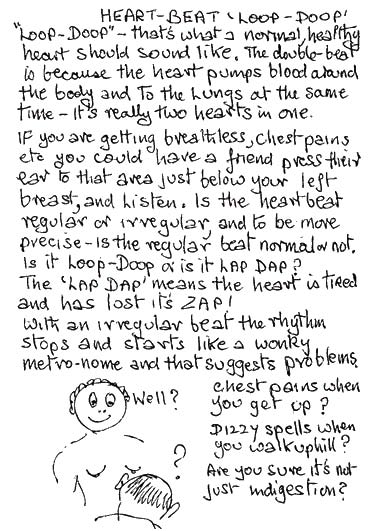 HEART-BEAT 'LOOP-DOOP'
"LOOP-DOOP" - that's what a normal, healthy
heart should sound like. The double-beat
is because the heart pumps blood around
the body and To the Lungs at the same
time - it's really two hearts in one.
IF you are getting breathless, chest pains
etc you could have a friend press their
ear to that area just below your left
breast, and Listen. Is the heartbeat
regular or irregular, and to be more
precise - is the regular beat normal or not.
Is it Loop-Doop or is it LAP DAP?
The 'LAP DAP' means the heart is tired
and has lost it's ZAP!
With an irregular beat the rhythm
stops and starts like a wonky
metro-nome and that suggests problems.
Well?
?
chest pains when
you get up?
Dizzy spells when
you walk uphill?
Are you sure it's not
just indigestion?